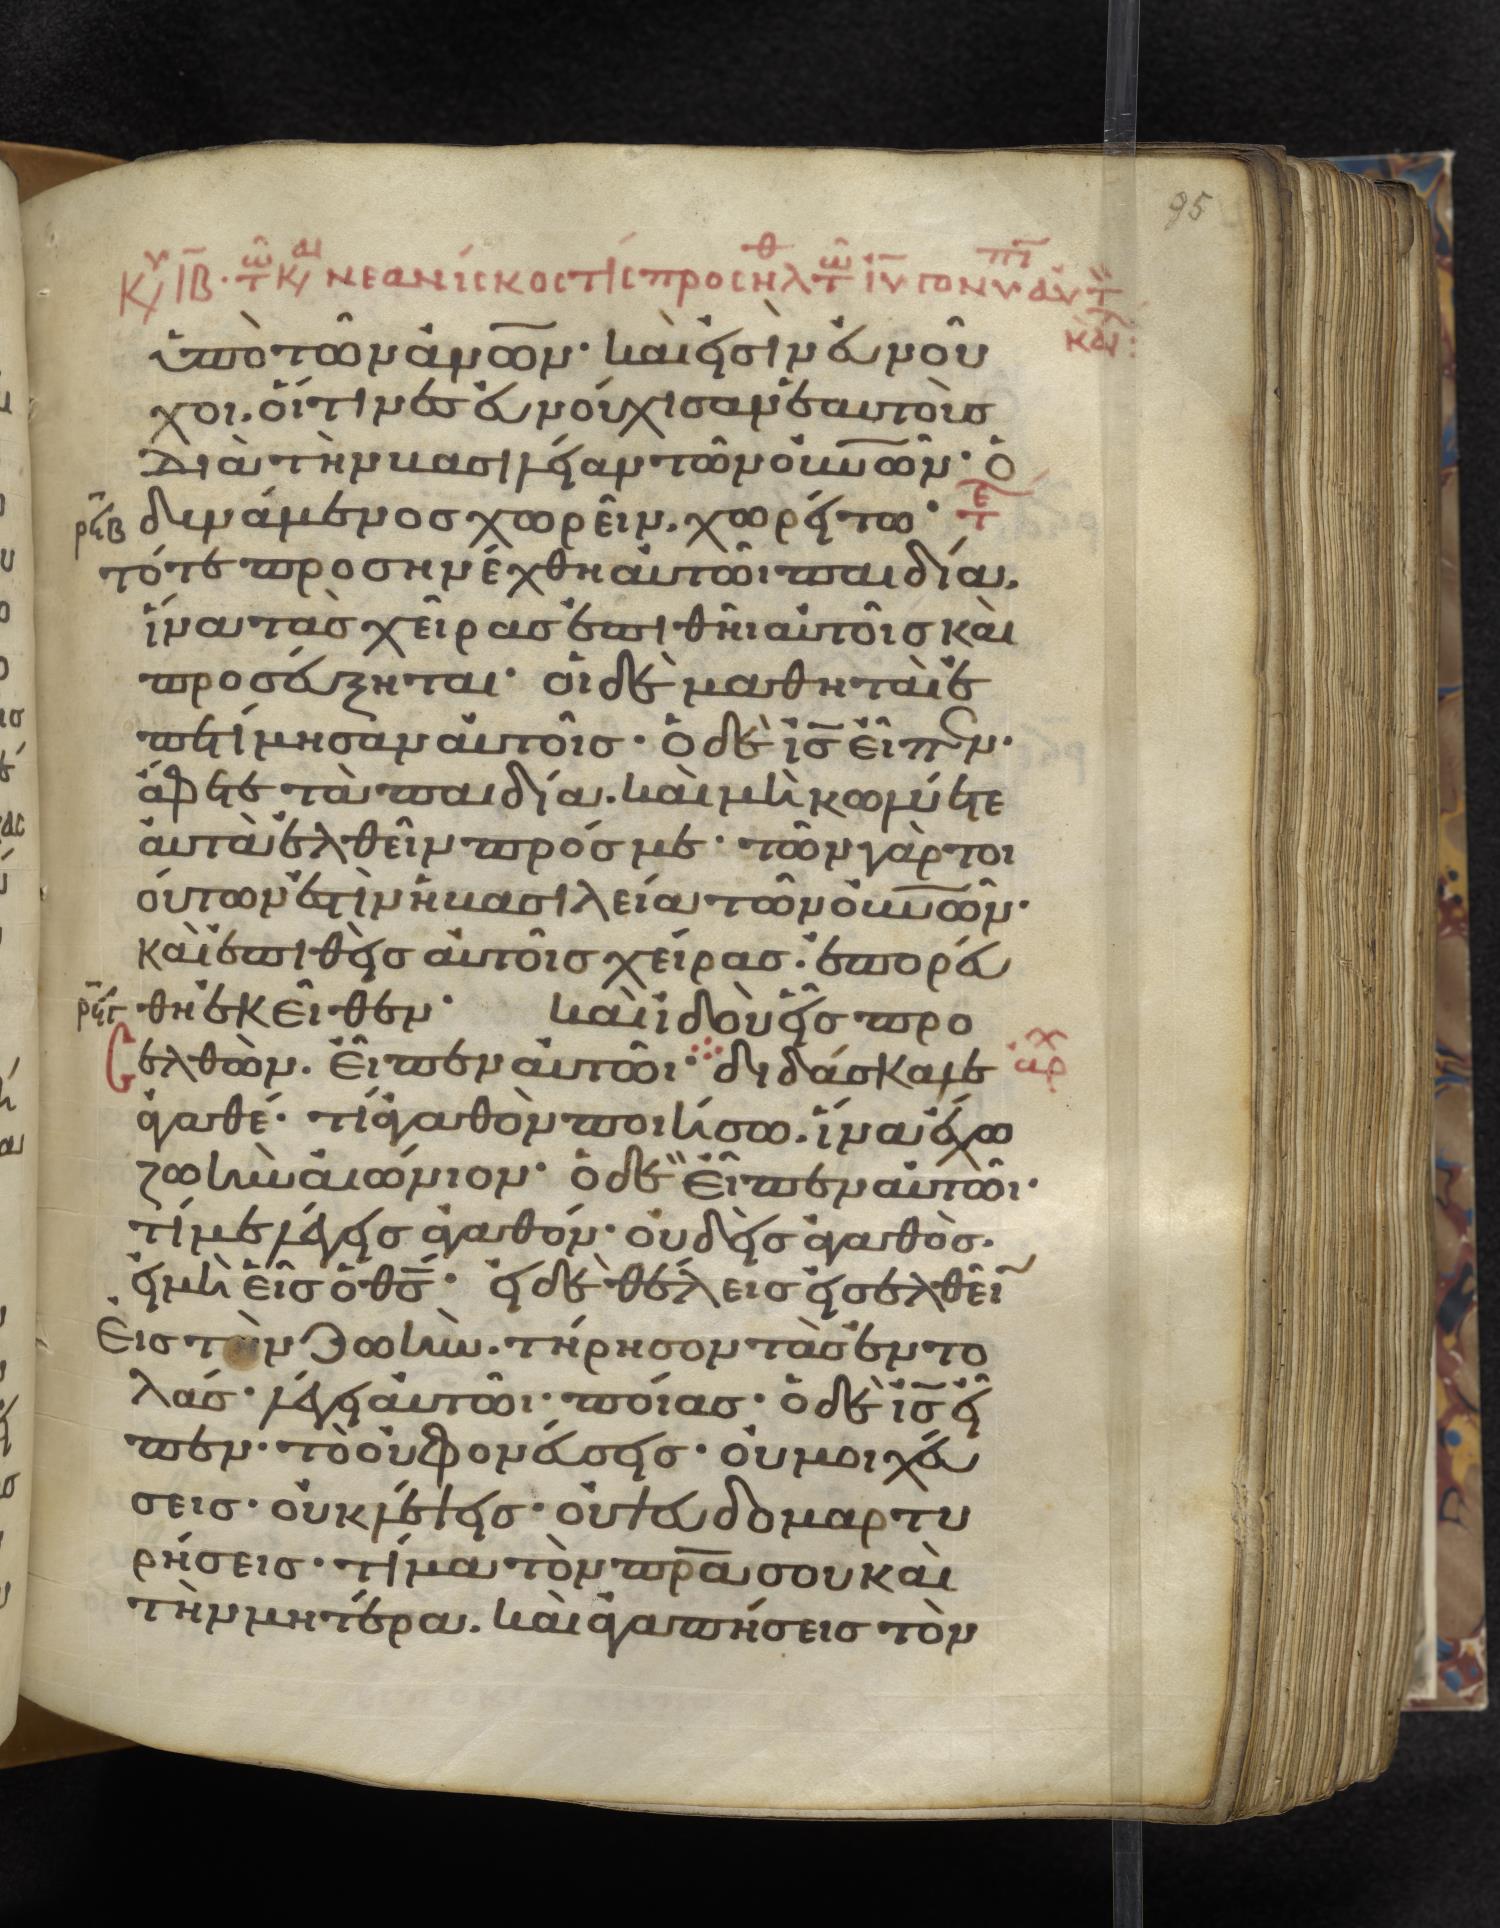 95
Κυ ΙΒ· τῶ κ αι νεανίσκος τις προσηλθ τῶ ιυ γονυπ αυτ
και:
ὑπὸ τῶν ἀνω̅ν· καὶ εἰσὶν εὐνοῦ
χοι. οἵτινες εὐνούχισαν ἑαυτοὺσ
διὰ τὴν βασιλείαν τῶν οὐν̅ω̅ν· ὁ
ρϟβ δυνάμενοσ χωρεῖν. χωρείτω· τε
τότε προσηνέχθη αὐτῶι παιδία.
ἵνα τὰσ χεῖρασ ἐπιθῆι αὐτοῖσ καὶ
προσεύξηται· οἱ δὲ μαθηταὶ ἐ
πετίμησαν αὐτοῖσ· ὁ δὲ ι̅σ̅ εἶπεν·
ἄφετε τὰ παιδία. καὶ μὴ κωλύετε
αὐτὰ ἐλθεῖν πρόσ με· τῶν γὰρ τοι
ούτων ἐστὶν ἡ βασιλεία τῶν οὐν̅ω̅ν·
καὶ ἐπιθεὶσ αὐτοῖσ χεῖρασ· ἐπορεύ
ρϟγ θη ἐκεῖθεν· καὶ ἰδοὺ εἷσ προ
σελθὼν. εἶπεν αὐτῶι· διδάσκαλε αρχ
ἀγαθέ· τί ἀγαθὸν ποιήσω. ἵνα ἔχω
ζωὴν αἰώνιον· ὁ δὲ εἶπεν αὐτῶι·
τί με λέγεισ ἀγαθόν· οὐδεὶσ ἀγαθὸσ.
εἰ μὴ εἷσ ὁ θ̅σ̅· εἰ δὲ θέλεισ εἰσελθεῖ
εἰσ τὴν ζωὴν. τήρησον τὰσ ἐντο
λάσ· λέγει αὐτῶι· ποίασ· ὁ δὲ ι̅σ̅ εἶ
πεν· τὸ οὐ φονεύσεισ· οὐ μοιχεύ
σεισ· οὐ κλέψεισ· οὐ ψευδομαρτυ
ρήσεισ· τίμα τὸν πρ̅α̅ σου καὶ
τὴν μητέρα. καὶ ἀγαπήσεισ τὸν